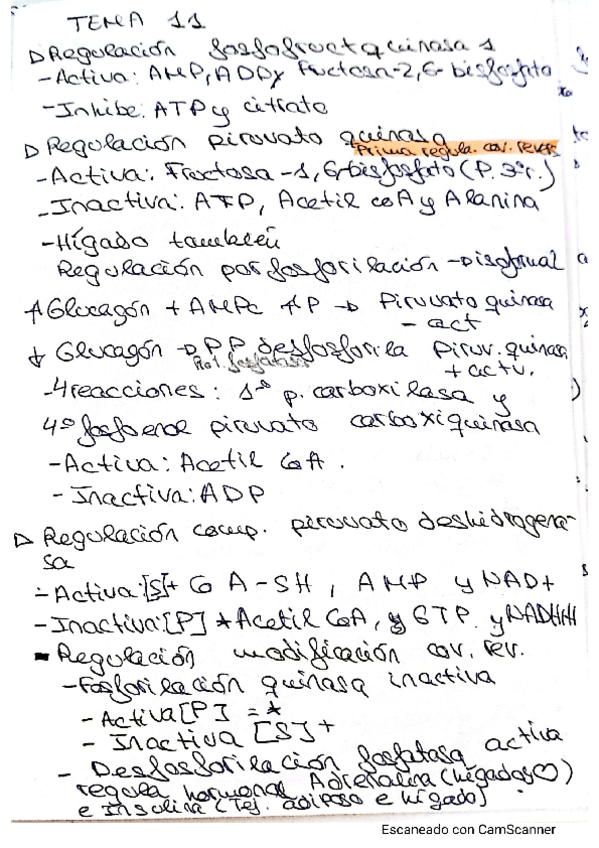 TEMA 11
▷ Regulación fosfofructquinasa 1
- Activa: AMP, ADP y Fructosa-2,6-bisfosfato
- Inhibe: ATP y citrato
▷ Regulación piruvato quinasa
Prima regula. cov. revers
- Activa: Fructosa-1,6-bisfosfato (P. 3ºr.)
- Inactiva: ATP, Acetil coA y Alanina
- Hígado también
Regulación por fosforilación -
↑ Glucagón + AMPc ↑P → Piruvato quinasa
- act
↓ Glucagón → PP desfosforila Piruv. quinasa
Prot. fosfatasa
+ activ.
- 4 reacciones: 1º p. carboxilasa y
4º fosfoenol piruvato carboxiquinasa
- Activa: Acetil CoA.
- Inactiva: ADP
▷ Regulación comp. piruvato deshidrogena-
sa
- Activa: [S]+ CoA-SH, AMP y NAD+
- Inactiva: [P] * Acetil CoA, y GTP. y NADHH
- Regulación modificación cov. rev.
- Fosforilación quinasa inactiva
- Activa [P] = *
- Inactiva [S] +
- Desfosforilación fosfatasa activa
regula hormonal Adrenalina (hígado y ♡)
e Insulina (Tej. adiposo e hígado)
Escaneado con CamScanner